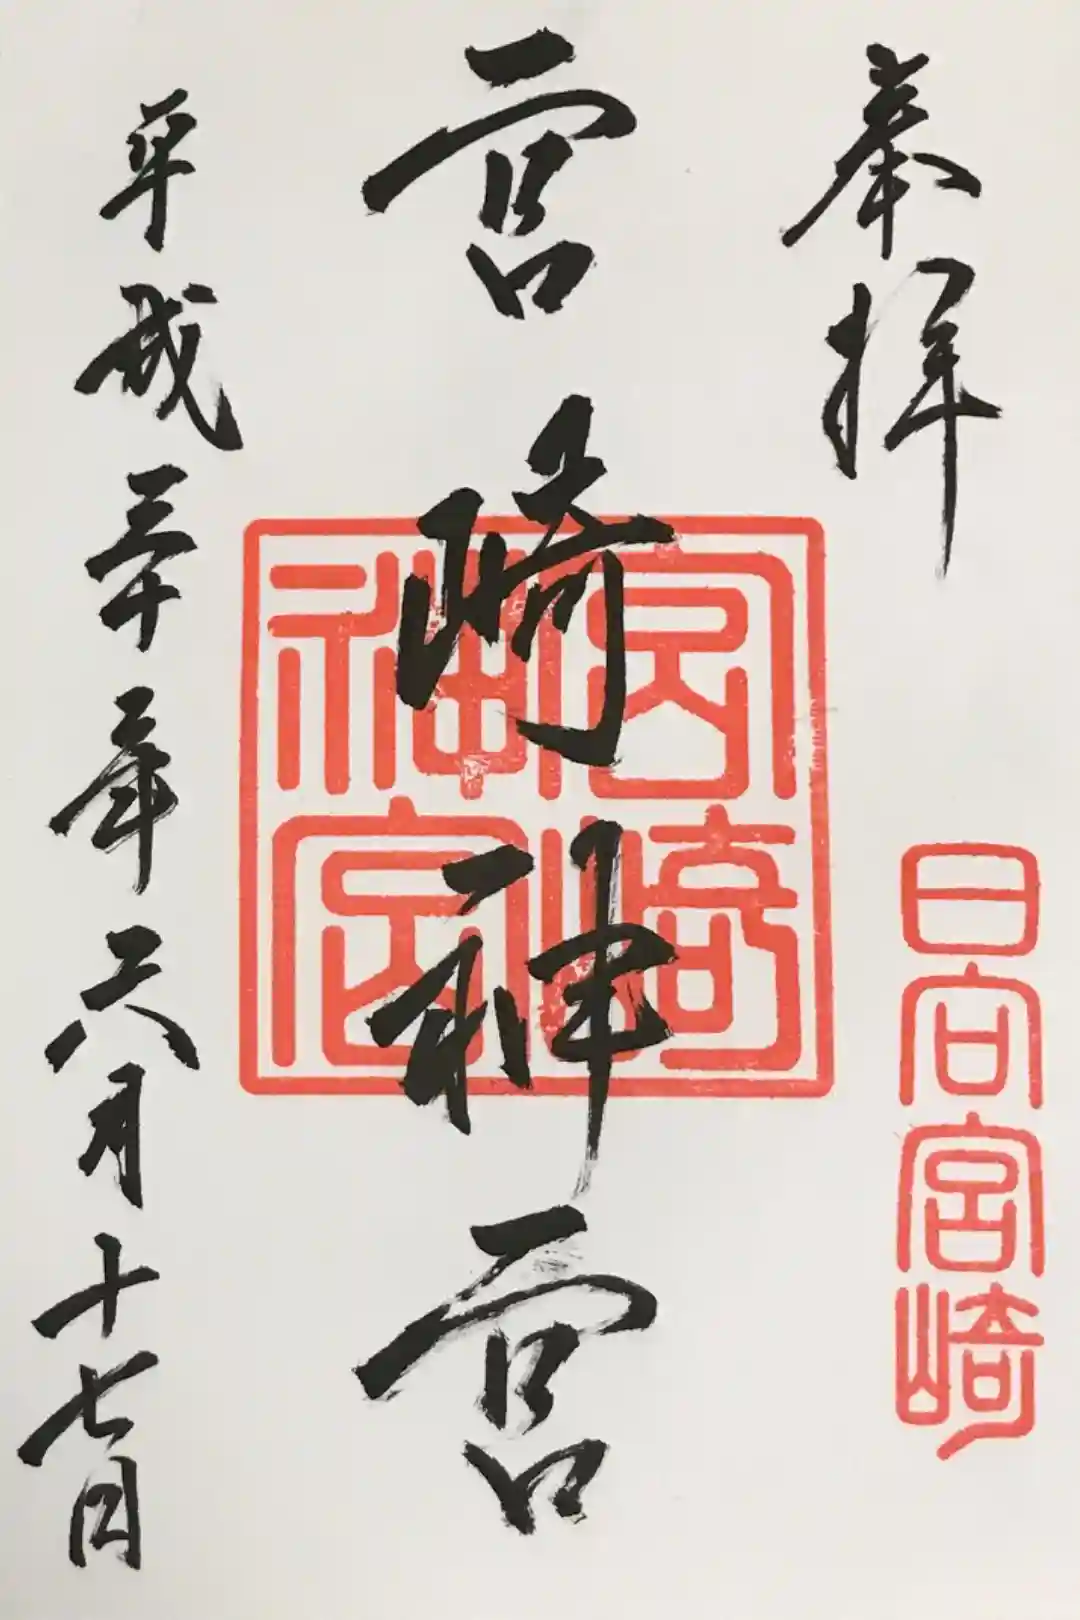 奉拝
日向宮崎
宮崎神宮
宮崎神宮
平成三十年六月十七日